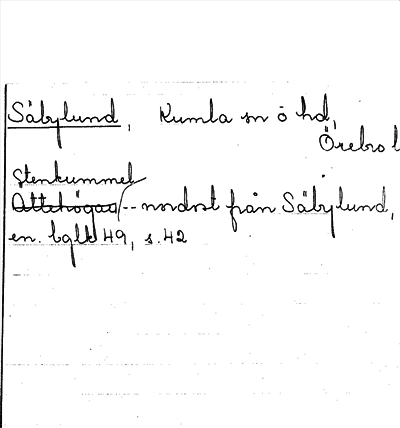 Säbylund, Kumla sn ö hd,
Örebro l
Stenkummel
Ättehögar -- nordost från Säbylund,
en. bglk 49, s. 42